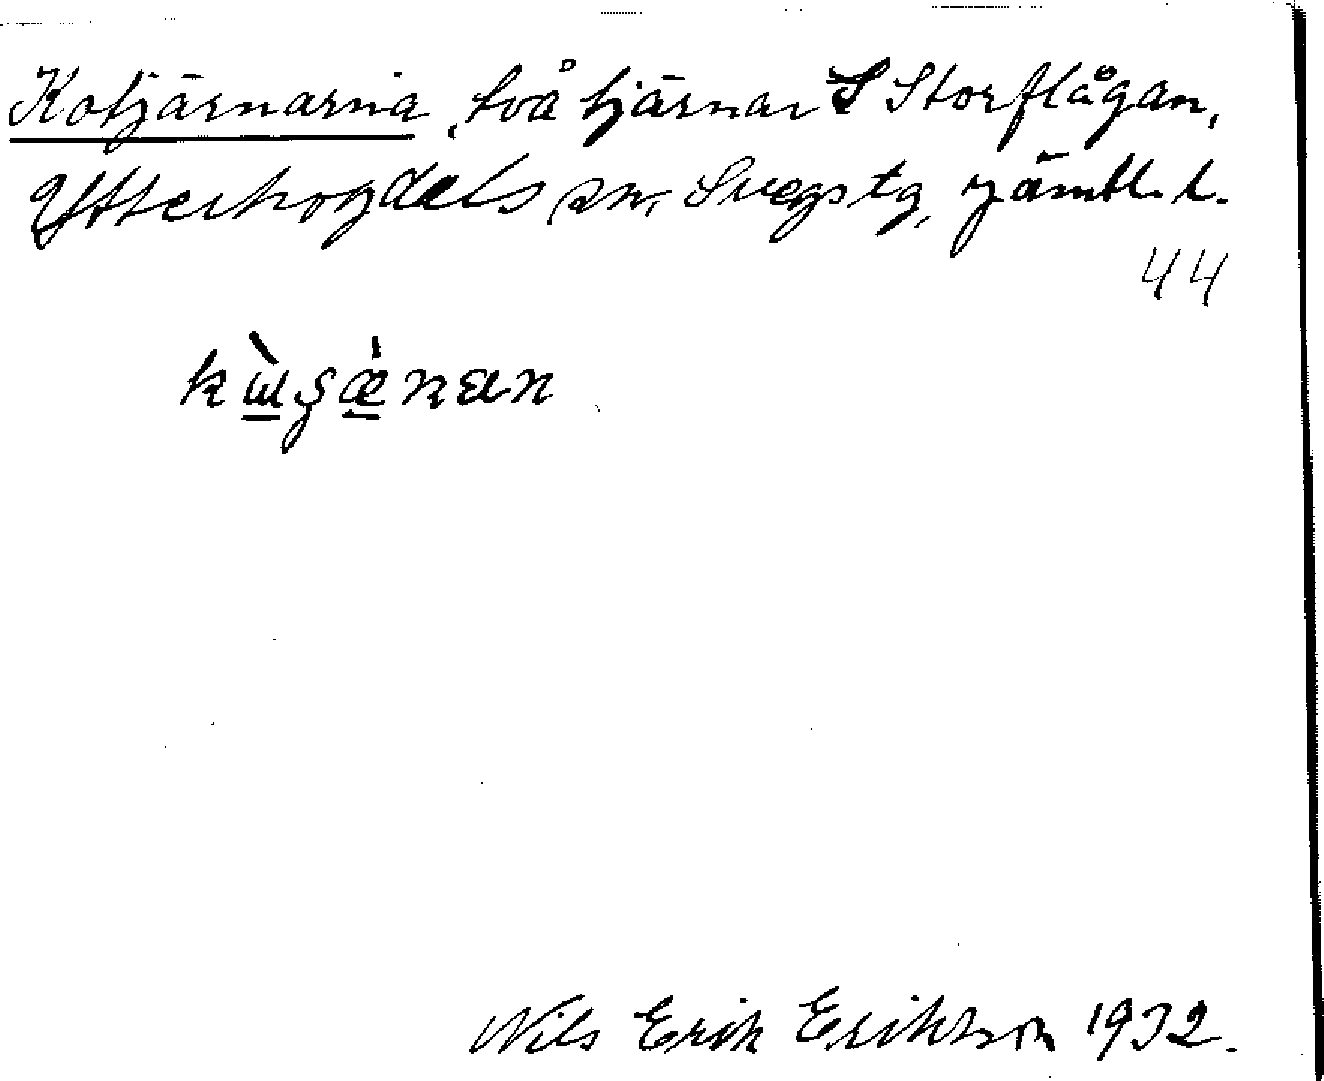 Kotjärnarna, två tjärnar S Storflågan,
Ytterhogdals sn, Svegs tg, Jämtl. l.
44
Nils Erik Erikkson 1932.